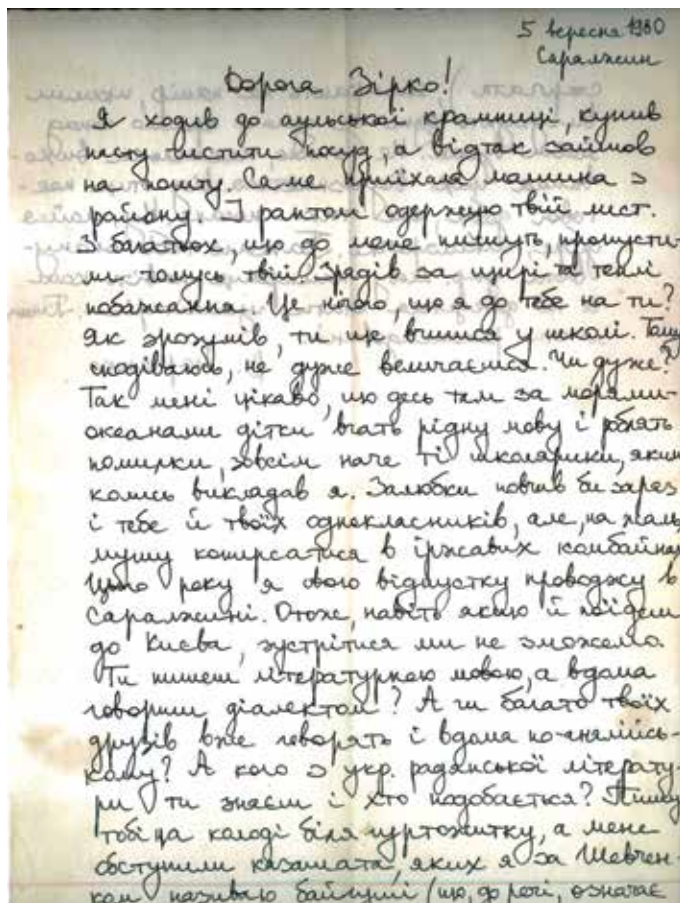 5 вересня 1980
Саралжин
Дорога Зірко!
Я ходив до аульської крамниці, купив
пасту чистити посуд, а відтак зайшов
на пошту. Саме приїхала машина з
району. І раптом одержую твій лист.
З багатьох, що до мене пишуть, пропусти-
ли чомусь твій. Зрадів за щирі та теплі
побажання. Це нічого, що я до тебе на ти?
Як зрозумів, ти ще вчишся у школі. Тому
сподіваюсь, не дуже величаєшся. Чи дуже?
Так мені цікаво, що десь там за морями-
океанами дітки вчать рідну мову і роблять
помилки, зовсім наче ті школярики, яким
колись викладав я. Залюбки повчив би зараз
і тебе й твоїх однокласників, але, на жаль,
мушу копирсатися в іржавих комбайнах
Цього року я свою відпустку проводжу в
Саралжині. Отож, навіть якщо й поїдеш
до Києва, зустрітися ми не зможемо.
Ти пишеш літературною мовою, а вдома
говориш діалектом? А чи багато твоїх
друзів вже говорять і вдома по-англійсь-
кому? А кого з укр. радянської літерату-
ри ти знаєш і хто подобається? Пишу
тобі на колоді біля гуртожитку, а мене
обступили казашата, яких я за Шевчен-
ком називаю байгуші (що, до речі, означає